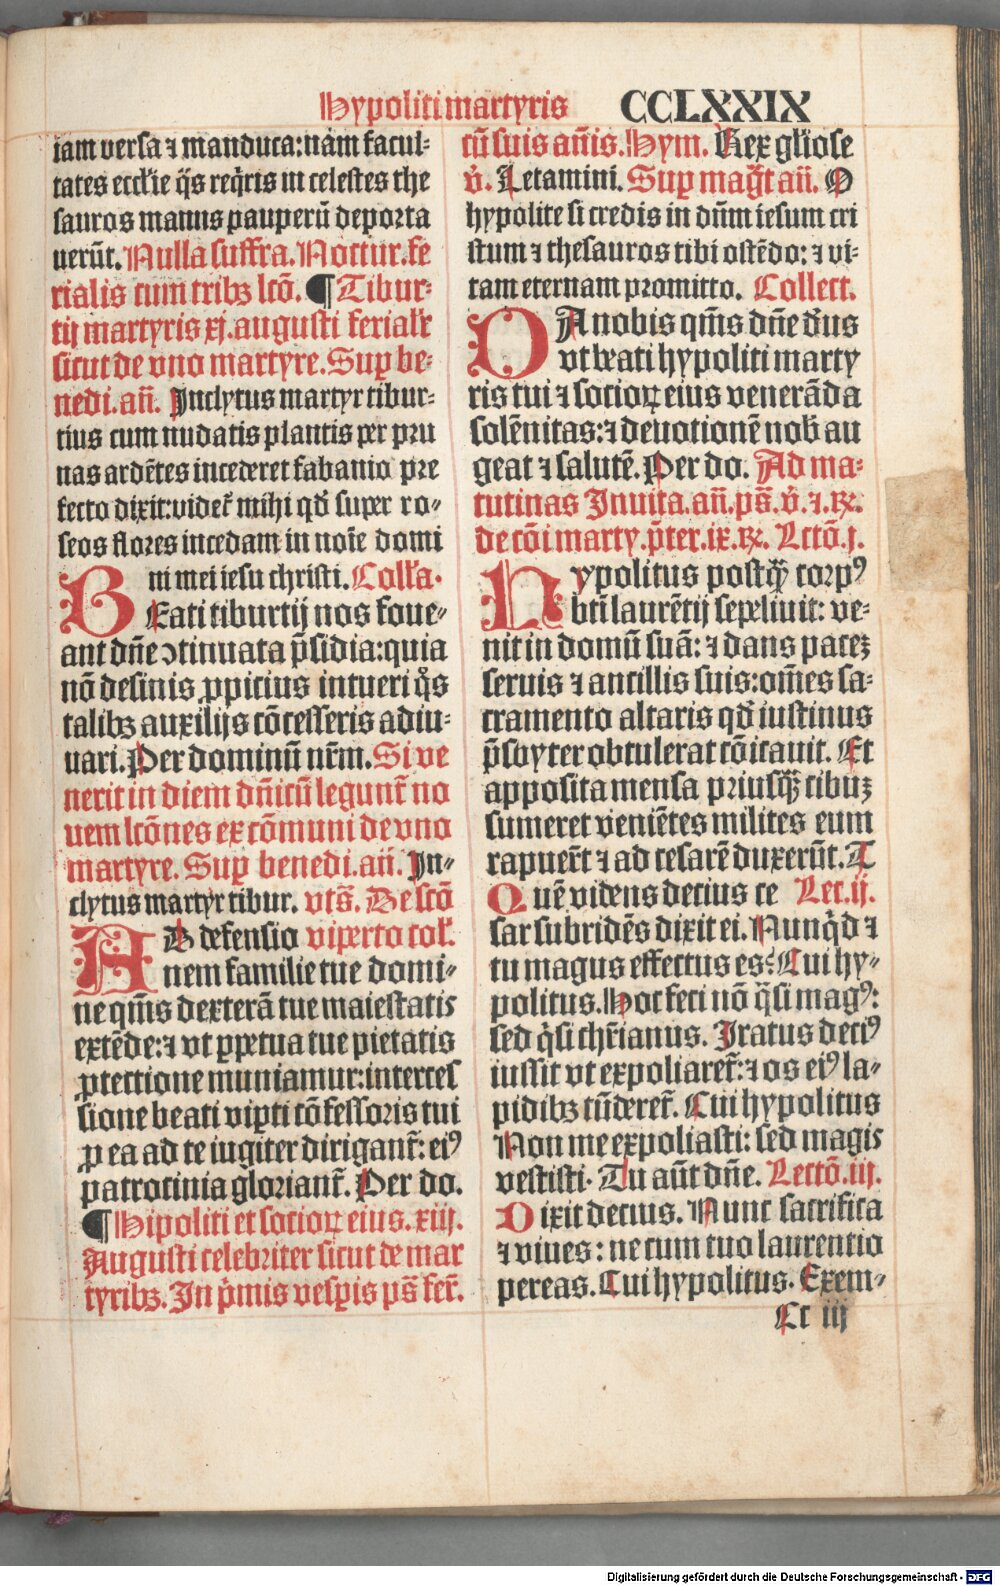 Hypoliti martyris CCLXXIX
iam versa ⁊ manduca: nam facul⸗
tates eccl̄ie q̄s req̇ris in celestes the
sauros manus pauperū deporta
uerūt. Nulla suffra. Noctur. fe
rialis cum tribꝫ lcō. ¶ Tibur⸗
tij martyris xj. augusti feriał'r
sicut de vno martyre. Sup be⸗
nedi. añ. Inclytus martyr tibur⸗
tius cum nudatis plantis per pru
nas ardētes incederet fabiano pre
fecto dixit: videt̄ mihi qd̄ super ro⸗
seos flores incedam in noīe domi
ni mei iesu christi. Coll'a.
BEati tiburtij nos foue⸗
ant dn̄e ↄtinuata p̄sidia: quia
nō desinis ꝓpitius intueri q̊s
talibꝫ auxilijs cōcesseris adiu⸗
uari. Per dominū nr̄m. Si ve
nerit in diem dn̄icū legunt̄ no
uem lcōnes ex cōmuni de vno
martyre. Sup benedi. añ. In⸗
clytus martyr tibur. vts̄. De scō
AD defensio viperto col'.
nem familie tue domi⸗
ne qm̄s dexterā tue maiestatis
extēde: ⁊ vt ꝑpetua tue pietatis
ꝓtectione muniamur: interces
sione beati vipti cōfessoris tui
ꝓ ea ad te iugiter dirigant̄: eiꝰ
patrocinia gloriant̄. Per do.
¶ Hipoliti et socioꝝ eius. xiij.
Augusti celebriter sicut de mar
tyribꝫ. In p̄mis vesꝑis ps̄ fer̄.
cū suis añis. Hym. Rex gl'iose
v̇. Letamini. Sup mag̃t añ. O
hypolite si credis in dn̄m iesum cri
stum ⁊ thesauros tibi ostēdo: ⁊ vi⸗
tam eternam promitto. Collect.
DA nobis qm̄s dn̄e de'us
vt beati hypoliti marty
ris tui ⁊ socioꝝ eius venerāda
solēnitas: ⁊ deuotionē nob' au
geat ⁊ salutē. Per do. Ad ma⸗
tutinas Inuita. añ. ps̄. v̇. ⁊. ℞.
de cōi marty. p̄ter. ix. ℞. Lctō. j.
HYpolitus postq̄ꝫ corpꝰ
bt̄i laurētij sepeliuit: ve⸗
nit in domū suā: ⁊ dans pacez
seruis ⁊ ancillis suis: om̄es sa⸗
cramento altaris qd̄ iustinus
p̄sbyter obtulerat cōicauit. Et
apposita mensa priusq̄ꝫ cibuz
sumeret veniētes milites eum
rapuer̄t ⁊ ad cesarē duxerūt. T
Quē videns decius ce Lec. ij.
sar subridēs dixit ei. Nunq̇d ⁊
tu magus effectus es? Cui hy⸗
politus. Hoc feci nō q̄si magꝰ:
sed q̄si chr̄ianus. Iratus deciꝰ
iussit vt expoliaret̄: ⁊ os eiꝰ la⸗
pidibꝫ tūderet̄. Cui hypolitus
Non me expoliasti: sed magis
vestisti. Tu aūt dn̄e. Lectō. iij.
Dixit decius. Nunc sacrifica
⁊ viues: ne cum tuo laurentio
pereas. Cui hypolitus. Exem⸗
Cc iij
Digitalisierung gefördert durch die Deutsche Forschungsgemeinschaft - DFG